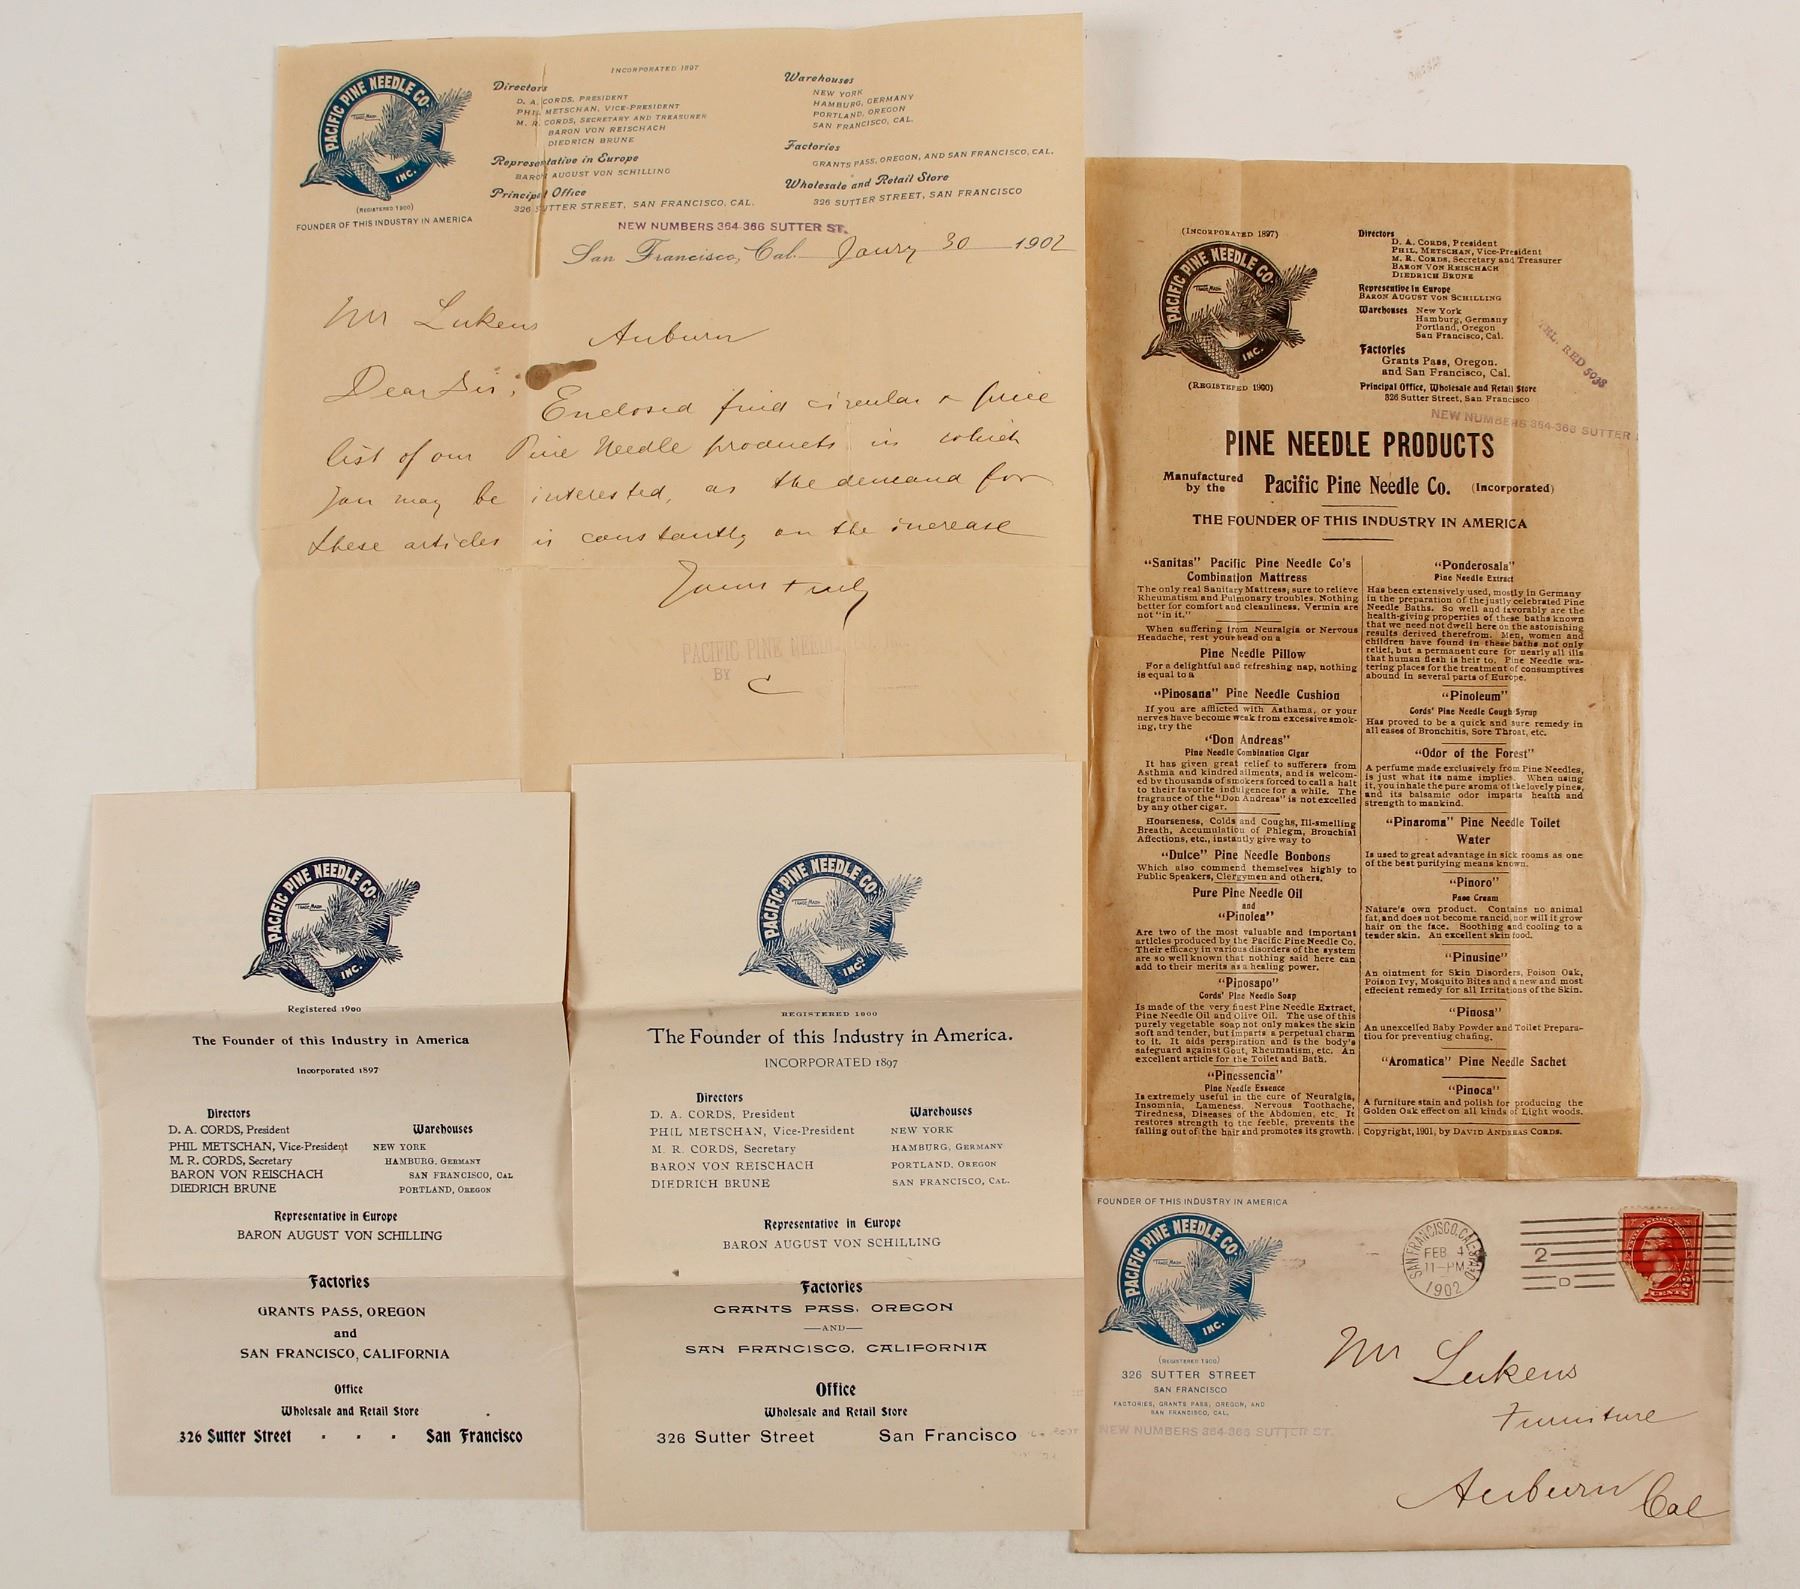 PACIFIC PINE NEEDLE CO.
TRADE MARK
INC.
(REGISTERED 1900)
FOUNDER OF THIS INDUSTRY IN AMERICA
INCORPORATED 1897
Directors
D. A. CORDS, PRESIDENT
PHIL METSCHAN, VICE-PRESIDENT
M. R. CORDS, SECRETARY AND TREASURER
BARON VON REISCHACH
DIEDRICH BRUNE
Representative in Europe
BARON AUGUST VON SCHILLING
Principal Office
326 SUTTER STREET, SAN FRANCISCO, CAL.
Warehouses
NEW YORK
HAMBURG, GERMANY
PORTLAND, OREGON
SAN FRANCISCO, CAL.
Factories
GRANTS PASS, OREGON, AND SAN FRANCISCO, CAL.
Wholesale and Retail Store
326 SUTTER STREET, SAN FRANCISCO
NEW NUMBERS 364-366 SUTTER ST.
San Francisco, Cal. Janry 30 1902
Mr Lukens
Auburn
Dear Sir;
Enclosed find circular & price
list of our Pine Needle products in which
you may be interested, as the demand for
these articles is constantly on the increase
Yours truly
PACIFIC PINE NEEDLE
BY C
(INCORPORATED 1897)
PACIFIC PINE NEEDLE CO.
TRADE MARK
INC.
(REGISTERED 1900)
Directors
D. A. CORDS, President
PHIL METSCHAN, Vice-President
M. R. CORDS, Secretary and Treasurer
BARON VON REISCHACH
DIEDRICH BRUNE
Representative in Europe
BARON AUGUST VON SCHILLING
Warehouses New York
Hamburg, Germany
Portland, Oregon
San Francisco, Cal.
Factories
Grants Pass, Oregon.
and San Francisco, Cal.
Principal Office, Wholesale and Retail Store
326 Sutter Street, San Francisco
TEL. RED 5038
NEW NUMBERS 364-366 SUTTER
PINE NEEDLE PRODUCTS
Manufactured
by the Pacific Pine Needle Co. (Incorporated)
THE FOUNDER OF THIS INDUSTRY IN AMERICA
"Sanitas" Pacific Pine Needle Co's
Combination Mattress
The only real Sanitary Mattress; sure to relieve
Rheumatism and Pulmonary troubles. Nothing
better for comfort and cleanliness. Vermin are
not "in it."
When suffering from Neuralgia or Nervous
Headache, rest your head on a
Pine Needle Pillow
For a delightful and refreshing nap, nothing
is equal to a
"Pinosana" Pine Needle Cushion
If you are afflicted with Asthama, or your
nerves have become weak from excessive smok-
ing, try the
"Don Andreas"
Pine Needle Combination Cigar
It has given great relief to sufferers from
Asthma and kindred ailments, and is welcom-
ed by thousands of smokers forced to call a halt
to their favorite indulgence for a while. The
fragrance of the "Don Andreas" is not excelled
by any other cigar.
Hoarseness, Colds and Coughs, Ill-smelling
Breath, Accumulation of Phlegm, Bronchial
Affections, etc., instantly give way to
"Dulce" Pine Needle Bonbons
Which also commend themselves highly to
Public Speakers, Clergymen and others.
Pure Pine Needle Oil
and
"Pinolea"
Are two of the most valuable and important
articles produced by the Pacific Pine Needle Co.
Their efficacy in various disorders of the system
are so well known that nothing said here can
add to their merits as a healing power.
"Pinosapo"
Cords' Pine Needle Soap
Is made of the very finest Pine Needle Extract,
Pine Needle Oil and Olive Oil. The use of this
purely vegetable soap not only makes the skin
soft and tender, but imparts a perpetual charm
to it. It aids perspiration and is the body's
safeguard against Gout, Rheumatism, etc. An
excellent article for the Toilet and Bath.
"Pinessencia"
Pine Needle Essence
Is extremely useful in the cure of Neuralgia,
Insomnia, Lameness, Nervous Toothache,
Tiredness, Diseases of the Abdomen, etc. It
restores strength to the feeble, prevents the
falling out of the hair and promotes its growth.
"Ponderosala"
Pine Needle Extract
Has been extensively used, mostly in Germany
in the preparation of the justly celebrated Pine
Needle Baths. So well and favorably are the
health-giving properties of these baths known
that we need not dwell here on the astonishing
results derived therefrom. Men, women and
children have found in these baths not only
relief, but a permanent cure for nearly all ills
that human flesh is heir to. Pine Needle wa-
tering places for the treatment of consumptives
abound in several parts of Europe.
"Pinoleum"
Cords' Pine Needle Cough Syrup
Has proved to be a quick and sure remedy in
all cases of Bronchitis, Sore Throat, etc.
"Odor of the Forest"
A perfume made exclusively from Pine Needles,
is just what its name implies. When using
it, you inhale the pure aroma of the lovely pines,
and its balsamic odor imparts health and
strength to mankind.
"Pinaroma" Pine Needle Toilet
Water
Is used to great advantage in sick rooms as one
of the best purifying means known.
"Pinoro"
Face Cream
Nature's own product. Contains no animal
fat, and does not become rancid, nor will it grow
hair on the face. Soothing and cooling to a
tender skin. An excellent skin food.
"Pinusine"
An ointment for Skin Disorders, Poison Oak,
Poison Ivy, Mosquito Bites and a new and most
effecient remedy for all Irritations of the Skin.
"Pinosa"
An unexcelled Baby Powder and Toilet Prepara-
tion for preventing chafing.
"Aromatica" Pine Needle Sachet
"Pinoca"
A furniture stain and polish for producing the
Golden Oak effect on all kinds of Light woods.
Copyright, 1901, by DAVID ANDREAS CORDS.
PACIFIC PINE NEEDLE CO.
TRADE MARK
INC.
Registered 1900
The Founder of this Industry in America
Incorporated 1897
Directors
D. A. CORDS, President
PHIL METSCHAN, Vice-President
M. R. CORDS, Secretary
BARON VON REISCHACH
DIEDRICH BRUNE
Warehouses
NEW YORK
HAMBURG, GERMANY
SAN FRANCISCO, CAL
PORTLAND, OREGON
Representative in Europe
BARON AUGUST VON SCHILLING
Factories
GRANTS PASS, OREGON
and
SAN FRANCISCO, CALIFORNIA
Office
Wholesale and Retail Store
326 Sutter Street - - - San Francisco
PACIFIC PINE NEEDLE CO.
TRADE MARK
INC.
REGISTERED 1900
The Founder of this Industry in America.
INCORPORATED 1897
Directors
D. A. CORDS, President
PHIL METSCHAN, Vice-President
M. R. CORDS, Secretary
BARON VON REISCHACH
DIEDRICH BRUNE
Warehouses
NEW YORK
HAMBURG, GERMANY
PORTLAND, OREGON
SAN FRANCISCO, CAL.
Representative in Europe
BARON AUGUST VON SCHILLING
Factories
GRANTS PASS, OREGON
—AND—
SAN FRANCISCO, CALIFORNIA
Office
Wholesale and Retail Store
326 Sutter Street San Francisco
FOUNDER OF THIS INDUSTRY IN AMERICA
PACIFIC PINE NEEDLE CO.
TRADE MARK
INC.
(REGISTERED 1900)
326 SUTTER STREET
SAN FRANCISCO
FACTORIES, GRANTS PASS, OREGON, AND
SAN FRANCISCO, CAL.
NEW NUMBERS 364-366 SUTTER ST.
SAN FRANCISCO, CAL.
FEB 4
11-PM
1902
2
D
CENTS
Mr Lukens
Furniture
Auburn Cal